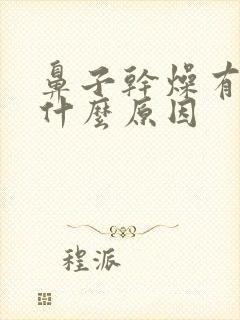 鼻子幹燥有
什麼原因
程派